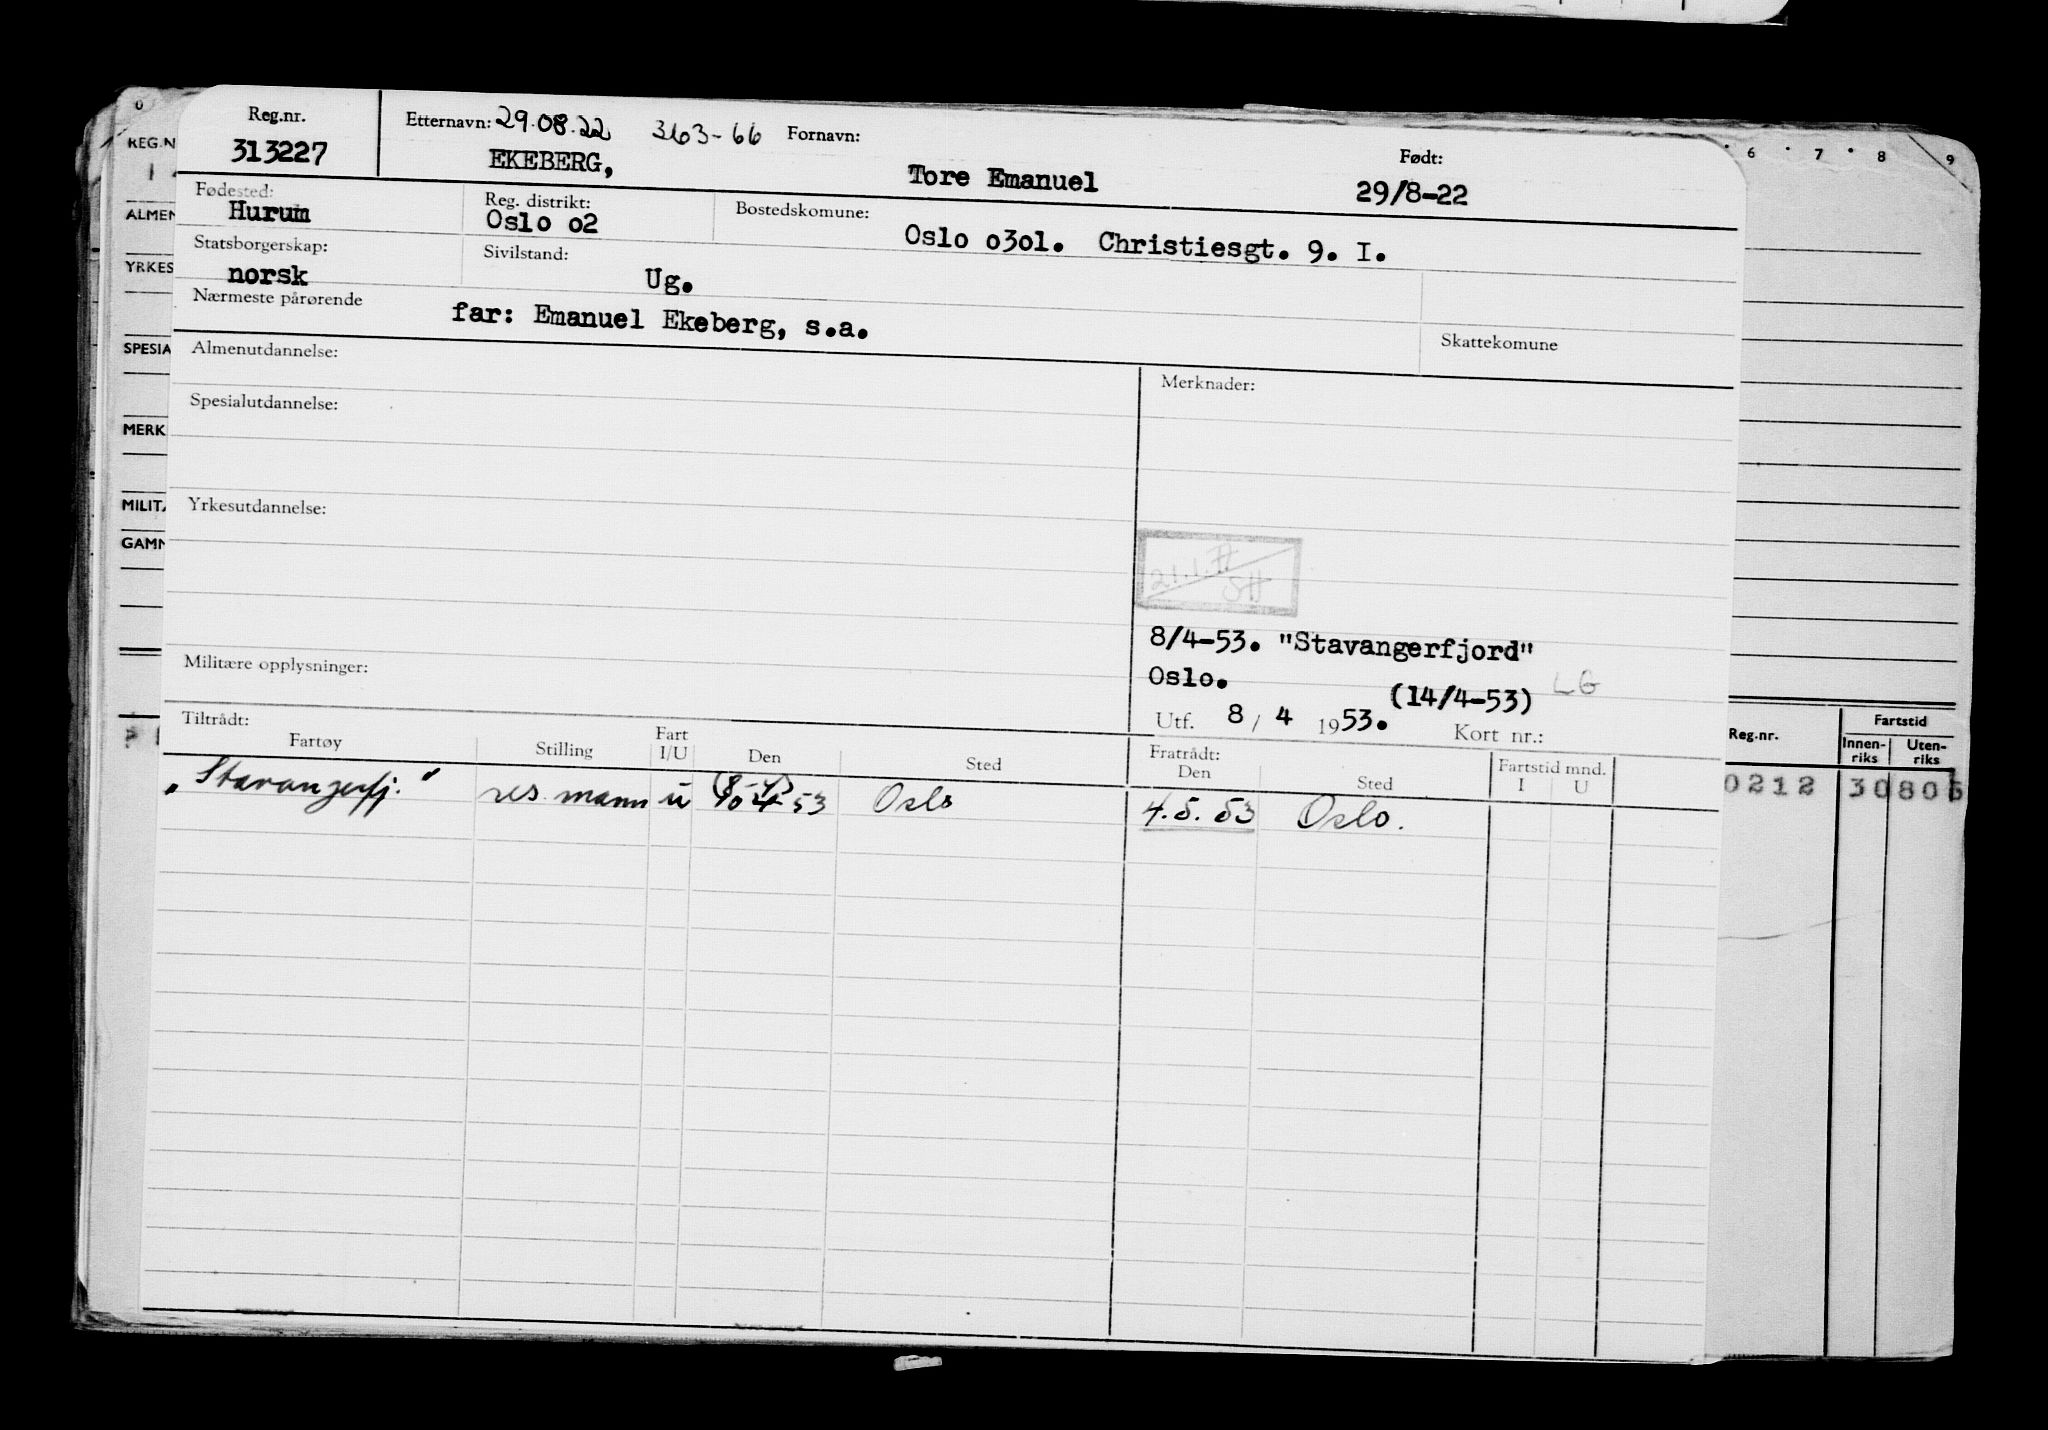 Reg.nr.
313227
Etternavn: 29.08.22 363-66 Fornavn:
EKEBERG, Tore Emanuel
Født:
29/8-22
Fødested:
Hurum
Reg. distrikt:
Oslo o2
Bostedskomune:
Oslo o3ol. Christiesgt. 9. I.
Statsborgerskap:
norsk
Sivilstand:
Ug.
Nærmeste pårørende
far: Emanuel Ekeberg, s.a.
Skattekomune
Almenutdannelse:
Merknader:
Spesialutdannelse:
Yrkesutdannelse:
8/4-53. "Stavangerfjord"
Oslo. (14/4-53) LG
Militære opplysninger:
Utf. 8 / 4 1953. Kort nr.:
Tiltrådt:
Fartøy Stilling Fart I/U Den Sted
Fratrådt:
Den Sted Fartstid mnd. I U
"Stavangerfj." res. mann u 53 Oslo 4.5.53 Oslo.
REG.N
ALMEN
YRKES
SPESIA
MERK
MILITÆ
GAMM
6 7 8 9
Reg.nr. Fartstid
Innen-riks Uten-riks
0212 30805